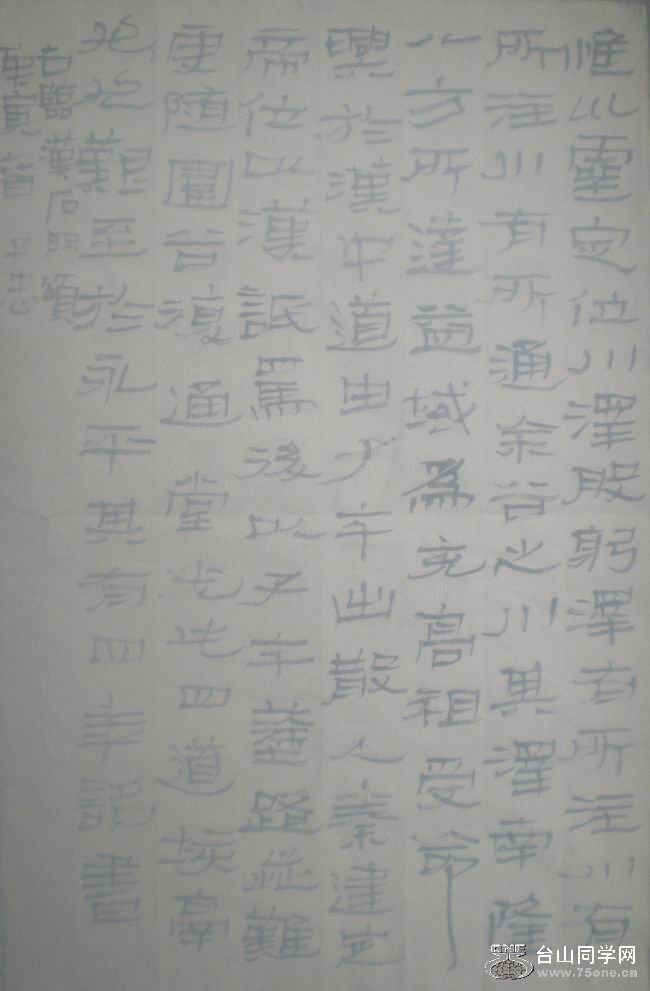 惟川靈定位川澤股躬澤有所注川有
所注川有所通余谷之川其澤南隆
八方所達益域為充高祖受命
興於漢中道由子午出散入秦建定
帝位以漢詆焉後以子午蓋路歰難
更隨圍谷復通堂光此四道垓鬲
尤艱至於永平其有四年詔書
右臨漢石門頌
庚寅春 子忠
台山同学网
www.75one.cn